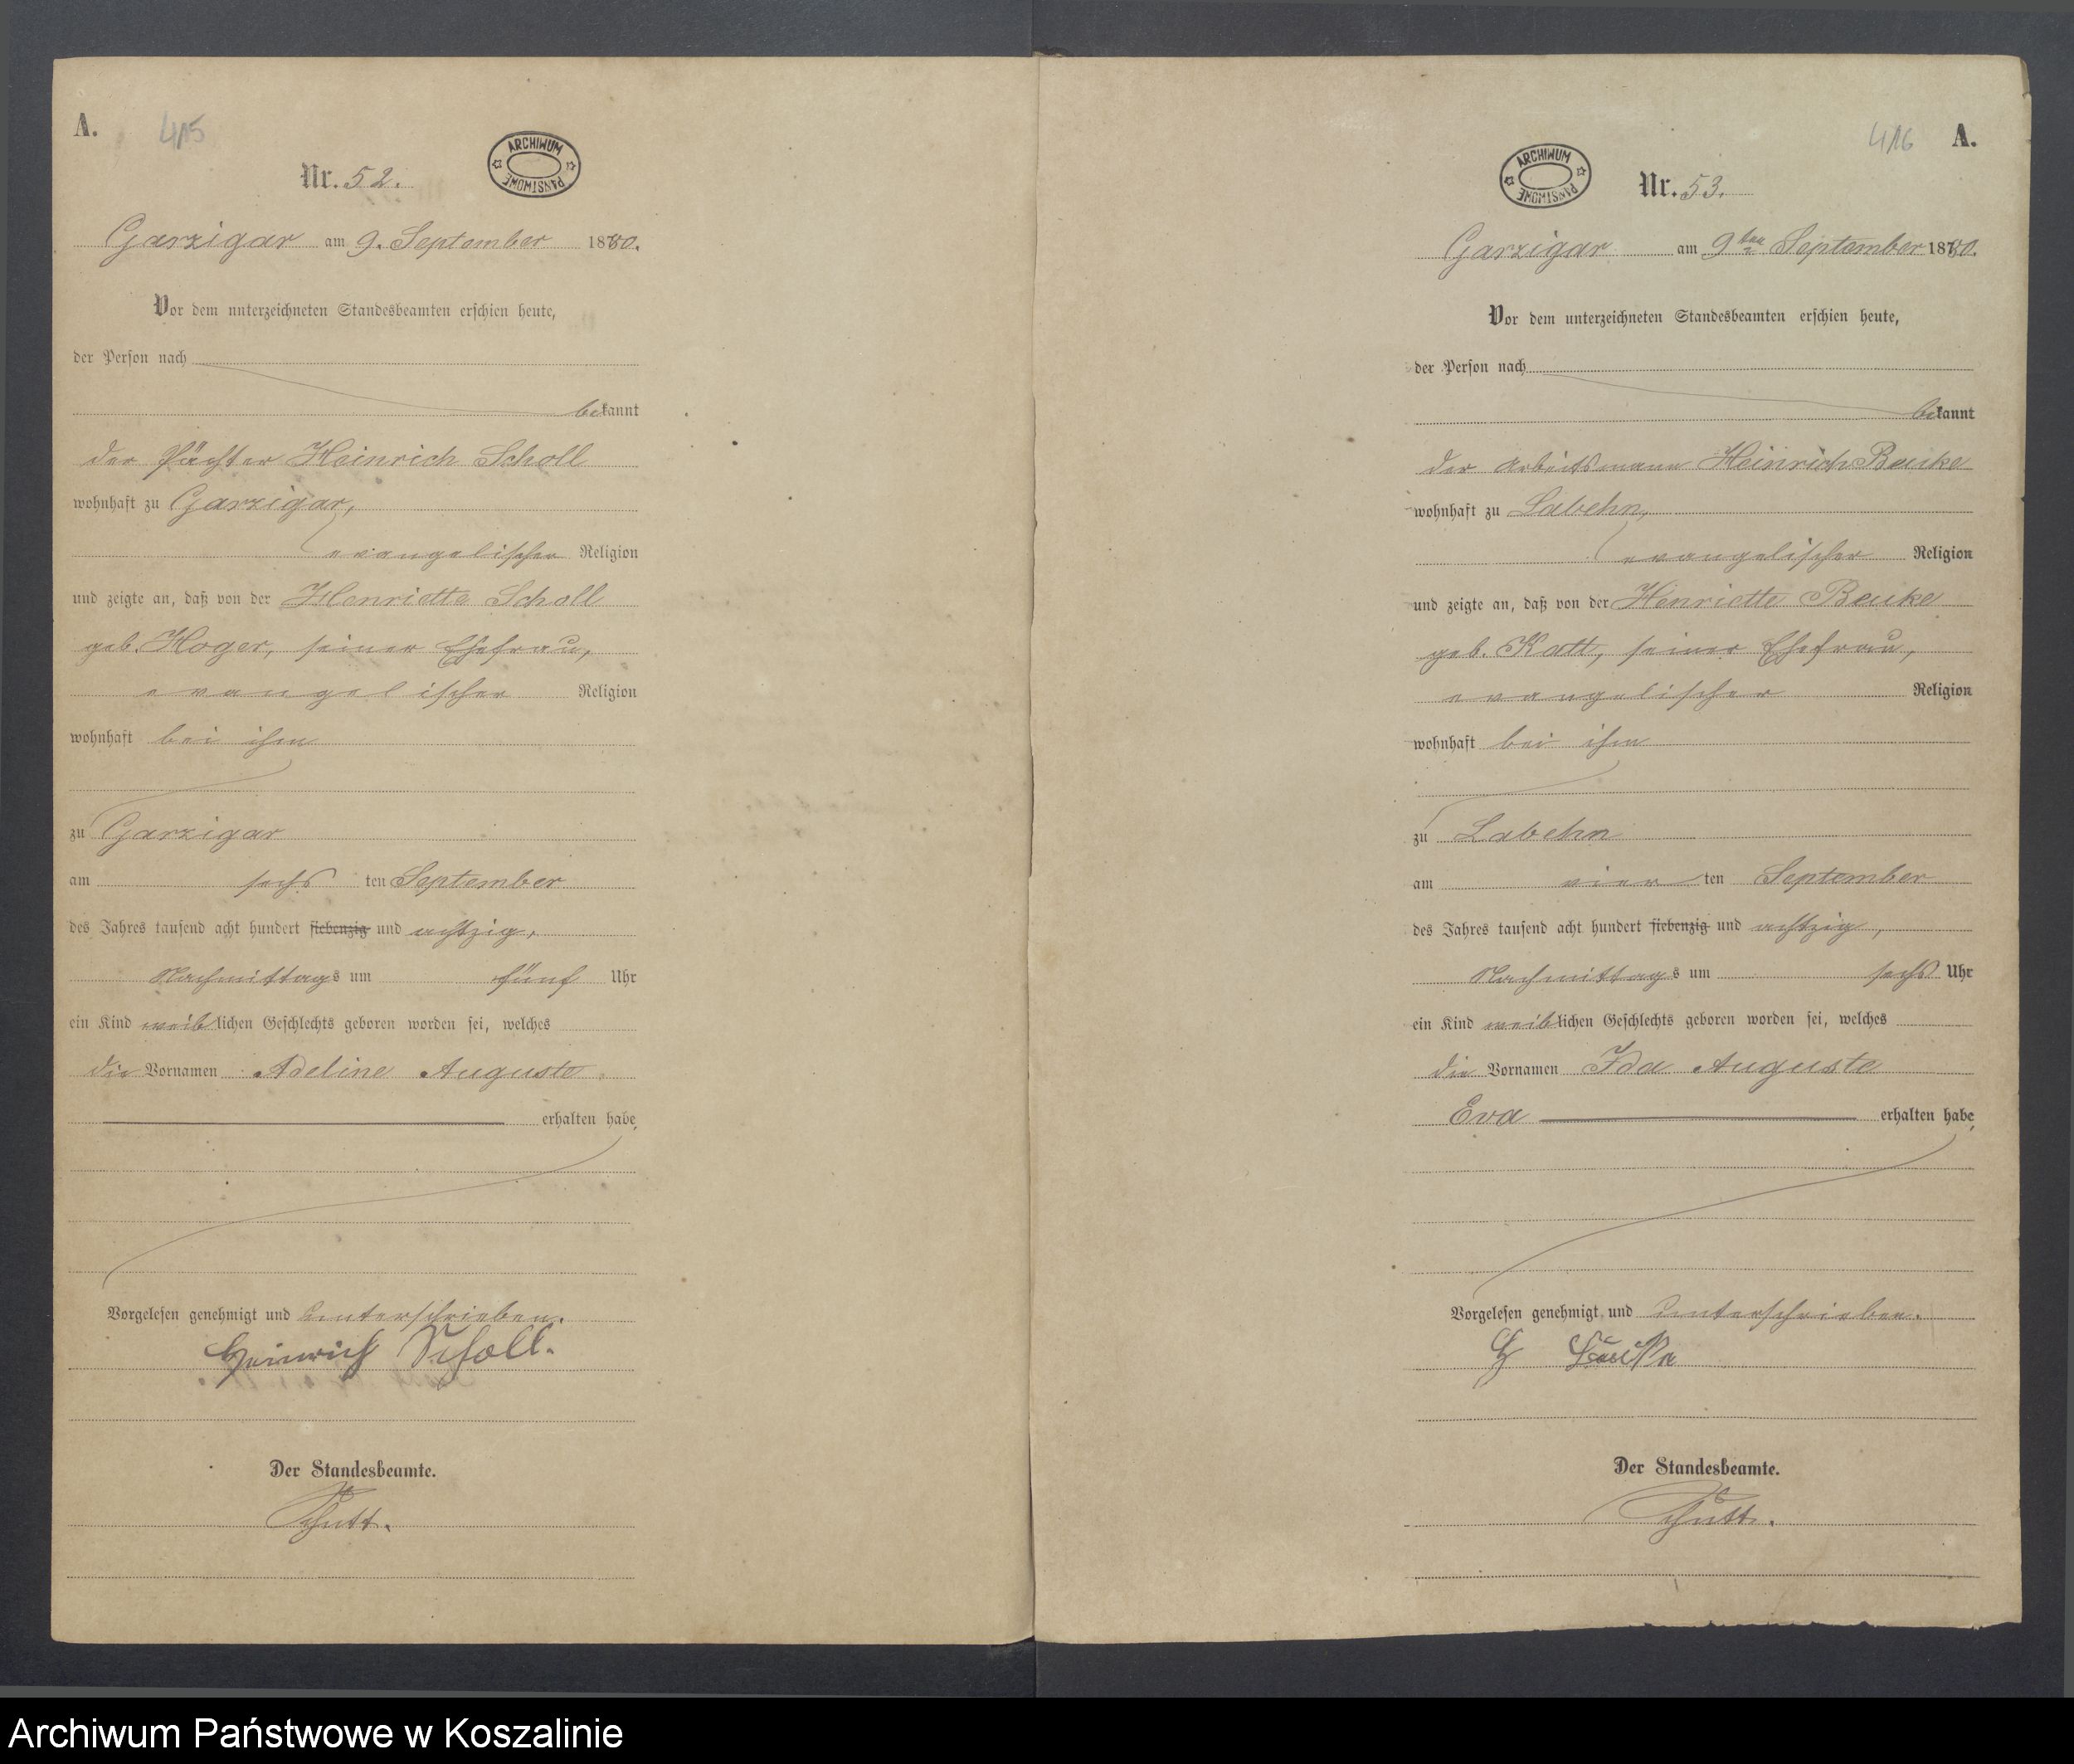 A.
415
Nr. 52.
ARCHIWUM PAŃSTWOWE
Garzigar am 9. September 1880.
Vor dem unterzeichneten Standesbeamten erschien heute,
der Person nach
bekannt
der Pächter Heinrich Scholl
wohnhaft zu Garzigar,
evangelischer Religion
und zeigte an, daß von der Henriette Scholl
geb. Hoger, seiner Ehefrau,
evangelischer Religion
wohnhaft bei ihm
zu Garzigar
am sechs ten September
des Jahres tausend acht hundert siebenzig und achtzig,
Nachmittags um fünf Uhr
ein Kind weiblichen Geschlechts geboren worden sei, welches
die Vornamen Adeline Auguste
erhalten habe.
Vorgelesen genehmigt und unterschrieben.
Heinrich Scholl.
Der Standesbeamte.
A.
416
Nr. 53.
ARCHIWUM PAŃSTWOWE
Garzigar am 9ten September 1880.
Vor dem unterzeichneten Standesbeamten erschien heute,
der Person nach
bekannt
der Arbeitsmann Heinrich Beuke
wohnhaft zu Labehn,
evangelischer Religion
und zeigte an, daß von der Henriette Beuke
geb. Katt, seiner Ehefrau,
evangelischer Religion
wohnhaft bei ihm
zu Labehn
am vier ten September
des Jahres tausend acht hundert siebenzig und achtzig,
Nachmittags um sechs Uhr
ein Kind weiblichen Geschlechts geboren worden sei, welches
die Vornamen Ida Auguste
Eva erhalten habe.
Vorgelesen genehmigt und unterschrieben.
H
Der Standesbeamte.
Archiwum Państwowe w Koszalinie